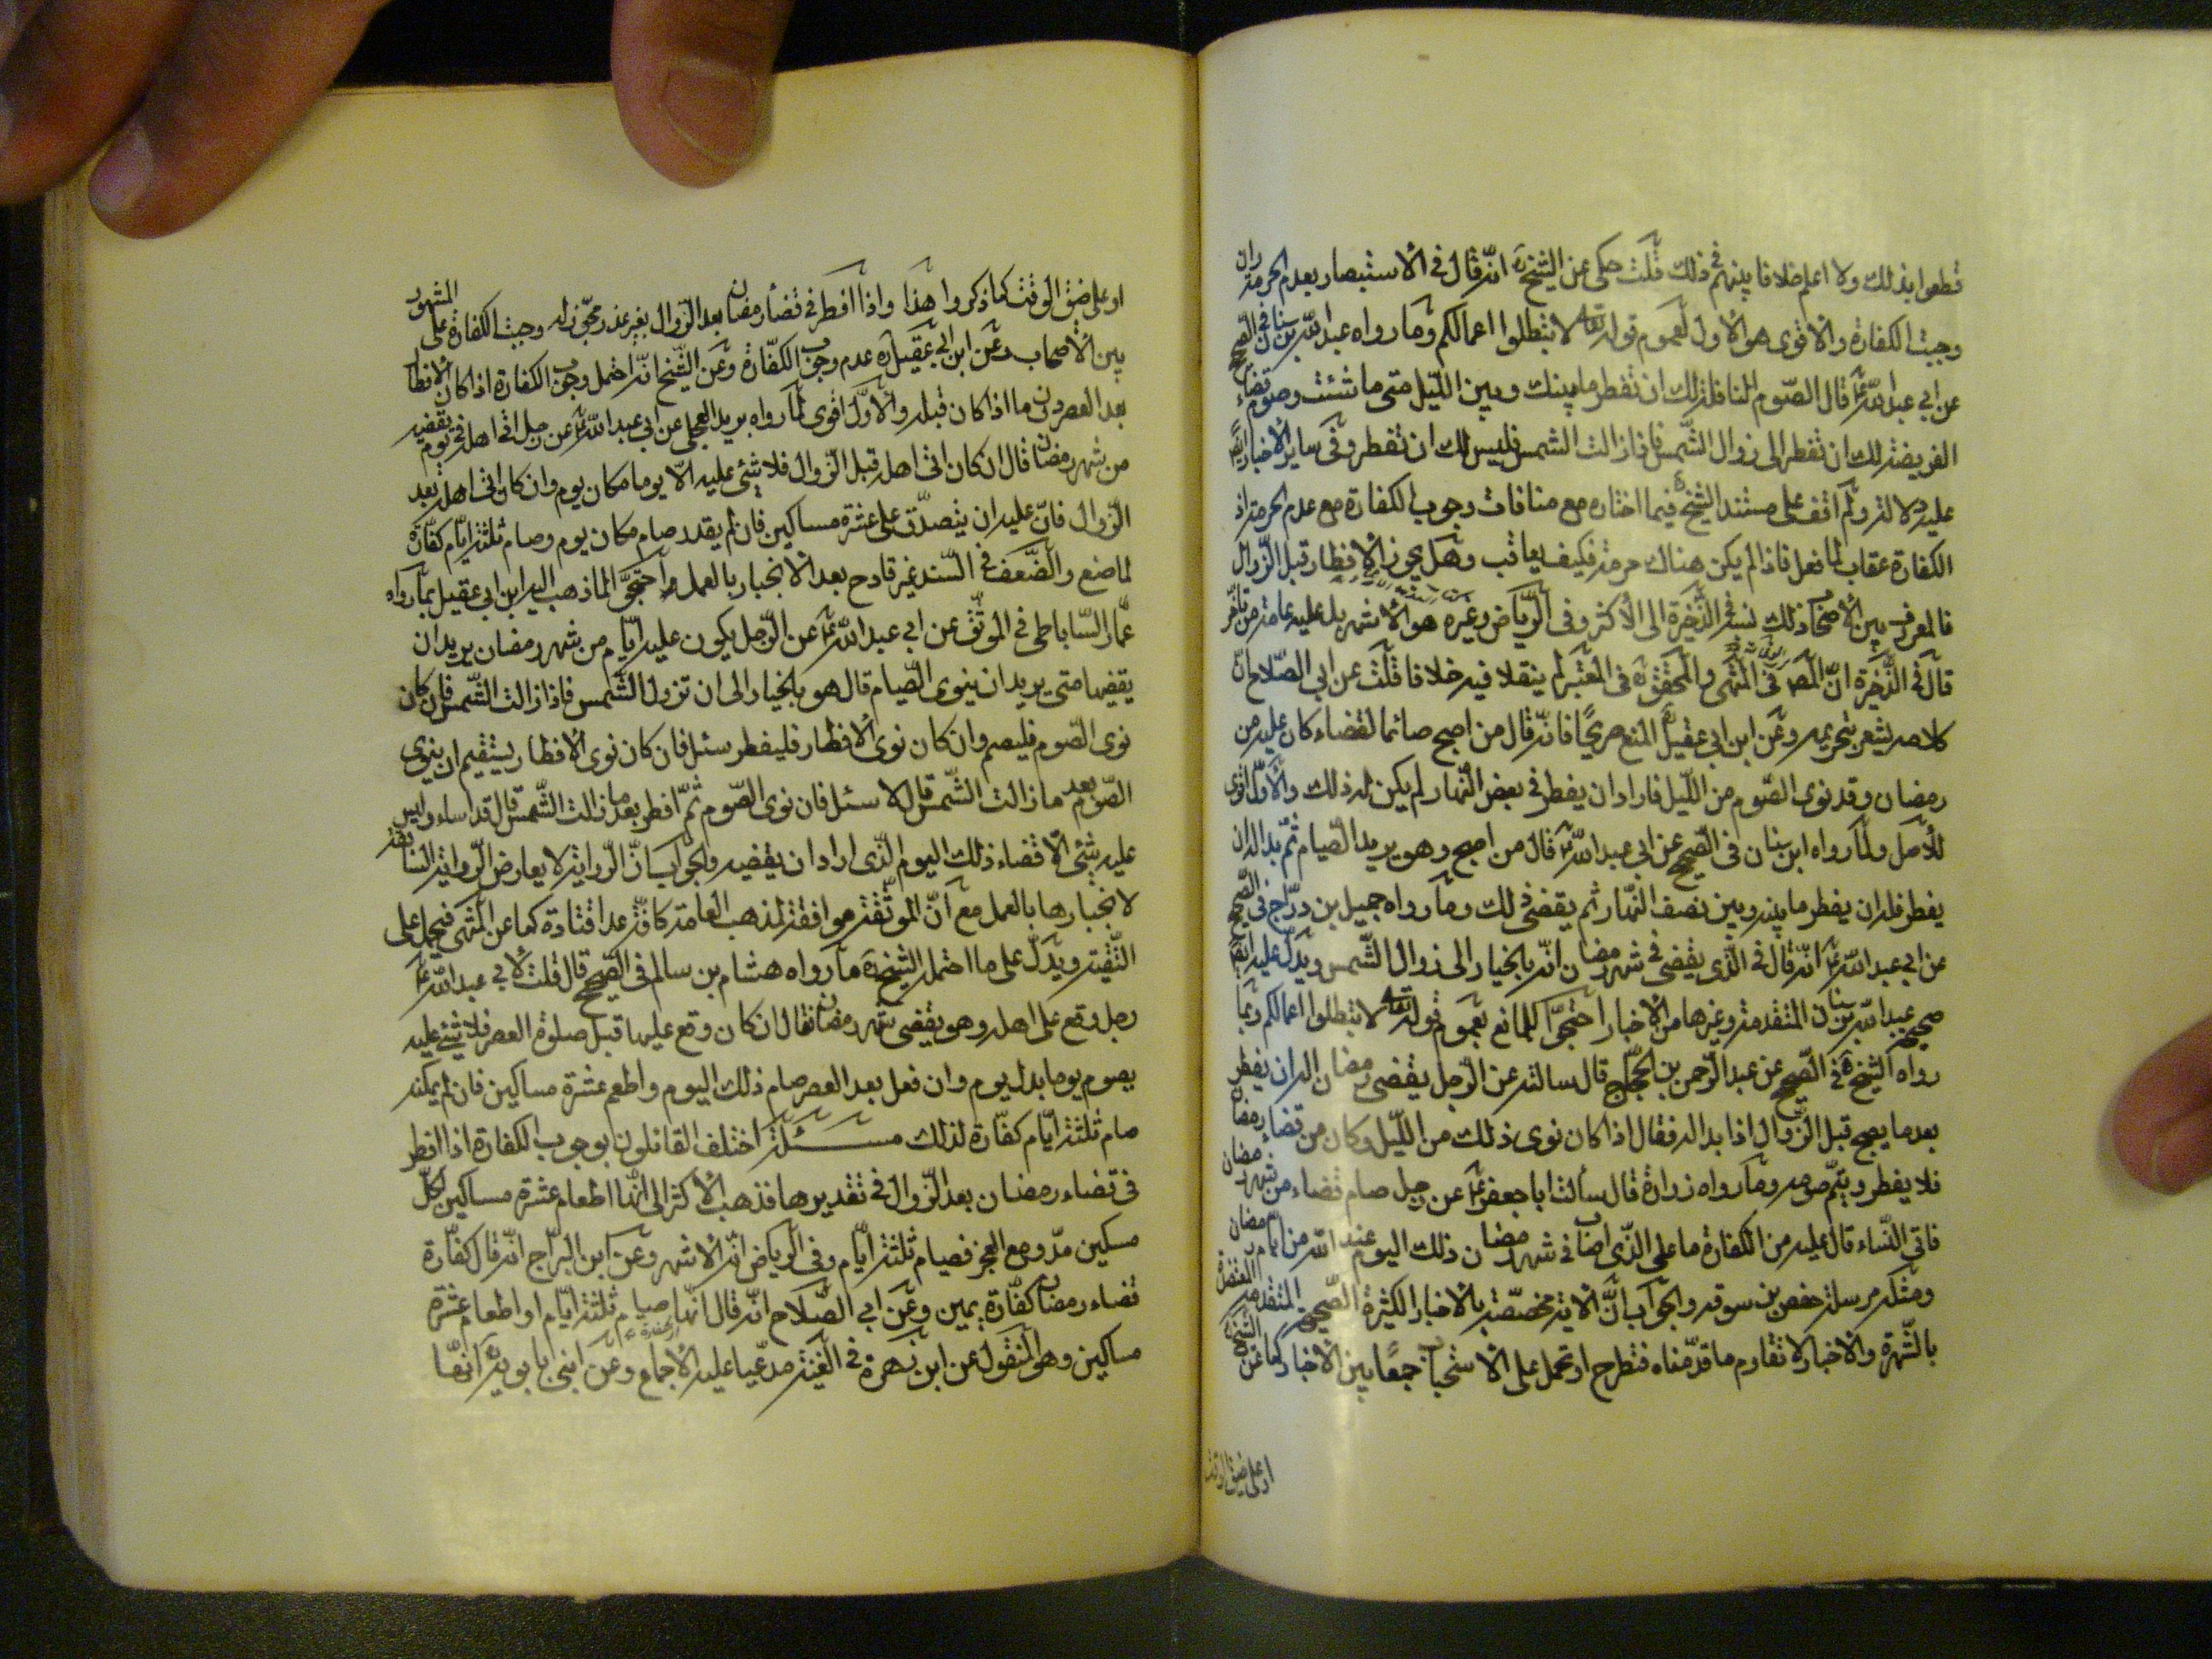 قطعوا بذلك ولا اعلم خلافا بينهم في ذلك قلت حكى عن الشيخ ره انّه قال في الاستبصار بعدم الحرمة وان
وجبت الكفارة والاقوى هو الاول لعموم قوله تعالى لا تبطلوا اعمالكم وما رواه عبد الله بن سنان في الصحيح
عن ابي عبد الله ع قال الصّوم النافلة لك ان تفطر ما بينك وبين الليل متى ما شئت وصوم قضاء
الفريضة لك ان تفطر الى زوال الشّمس فاذا زالت الشمس فليس لك ان تفطر وفي ساير الاخبار ايضا
عليه دلالة ولم اقف على مستند الشيخ ره فيما اختاره مع منافات وجوب الكفارة مع عدم الحرمة اذ
الكفارة عقاب لما فعل فاذا لم يكن هناك حرمة فكيف يعاقب وهل يجوز الافطار قبل الزّوال
فالمعروف بين الاصحاب ذلك نسبه في الذّخيرة الى الاكثر وفي الرّياض وغيره هو الاشهر بل عليه عامة من تأخّر
قال في الذّخيرة انّ المص في المنتهى والمحقق ره في المعتبر لم ينقلا فيه خلافا قلت عن ابي الصّلاح انّ
كلامه يشعر بتحريمه وعن ابن ابي عقيل ره المنع صريحًا فانّه قال من اصبح صائما لقضاء كان عليه من
رمضان وقد نوى الصّوم من اللّيل فاراد ان يفطر في بعض النّهار لم يكن له ذلك والاوّل اقوى
للأصل ولما رواه ابن سنان في الصّحيح عن ابي عبد الله ع قال من اصبح وهو يريد الصّيام ثمّ بدا له ان
يفطر فله ان يفطر ما بينه وبين نصف النّهار ثم يقضي ذلك وما رواه جميل بن درّاج في الصّحيح
عن ابي عبد الله ع انّه قال في الذّي يقضي شهر رمضان انّه بالخيار الى زوال الشّمس ويدلّ عليه ايضا
صحيح عبد الله بن سنان المتقدمة وغيرها من الاخبار احتجّوا للمانع بعموم قوله تعالى لا تبطلوا اعمالكم وبما
رواه الشيخ ره في الصّحيح عن عبد الرّحمن بن الحجّاج قال سالته عن الرّجل يقضى رمضان اله ان يفطر
بعد ما يصبح قبل الزّوال اذا بدا له فقال اذا كان نوى ذلك من اللّيل وكان من قضاء رمضان
فلا يفطر ويتمّ صومه وما رواه زرارة قال سألت ابا جعفر ع عن رجل صام قضاء من شهر رمضان
فاتى النّساء قال عليه من الكفارة ما على الذّى اصاب في شهر رمضان ذلك اليوم عند الله من ايّام رمضان
ومثله مرسلة حفص بن سوقه والجواب انّ الاية مخصّصة بالاخبار الكثيرة الصّحيحة المتقدمة المعتضدة
بالشّهرة والاخبار لا تقاوم ما قدّمناه فتطرح او تحمل على الاستحباب جمعًا بين الاخبار كما عن الشيخ ره
او على ضيق الوقت
او على ضيق الوقت كما ذكروا هذا واذا افطر في قضاء رمضان بعد الزّوال بغير عذر مجوّز له وجبت الكفارة على المشهور
بين الاصحاب وعن ابن ابي عقيل ره عدم وجوب الكفّارة وعن الشّيخ انّه احتمل وجوب الكفارة اذا كان الافطار
بعد العصر دون ما اذا كان قبله والاوّل اقوى لما رواه بريد العجلي عن ابي عبد الله ع عن رجل اتى اهله في يوم يقضيه
من شهر رمضان قال ان كان اتى اهله قبل الزّوال فلا شئ عليه الّا يوما مكان يوم وان كان اتى اهله بعد
الزّوال فانّ عليه ان يتصدّق على عشرة مساكين فان لم يقدر صام مكان يوم وصام ثلثة ايّام كفّارة
لما صنع والضّعف في السّند غير قادح بعد الانجبار بالعمل واحتجّوا لما ذهب اليه ابن ابي عقيل بما رواه
عمّار السّاباطى في الموثّق عن ابي عبد الله ع عن الرّجل يكون عليه ايّام من شهر رمضان يريد ان
يقضيها متى يريد ان ينوى الصّيام قال هو بالخيار الى ان تزول الشّمس فاذا زالت الشّمس فان كان
نوى الصّوم فليصم وان كان نوى الافطار فليفطر سئل فان كان نوى الافطار يستقيم ان ينوى
الصّوم بعد ما زالت الشّمس قال لا سئل فان نوى الصّوم ثمّ افطر بعد ما زالت الشّمس قال قد اساء وليس
عليه شئ الّا قضاء ذلك اليوم الذّى اراد ان يقضيه والجواب انّ الرّواية لا يعارض الرّواية السّابقة
لانجبارها بالعمل مع انّ الموثّقة موافقة لمذهب العامة كافّة عدا قتادة كما عن المنتهى فيحمل على
التّقيّة ويدلّ على ما احتمله الشيخ ره ما رواه هشام بن سالم في الصّحيح قال قلت لابي عبد الله ع
رجل وقع على اهله وهو يقضى شهر رمضان فقال ان كان وقع عليها قبل صلوة العصر فلا شئ عليه
يصوم يوما بدل يوم وان فعل بعد العصر صام ذلك اليوم واطعم عشرة مساكين فان لم يمكنه
صام ثلثة ايّام كفّارة لذلك مسئلة اختلف القائلون بوجوب الكفارة اذا افطر
في قضاء رمضان بعد الزّوال في تقديرها فذهب الاكثر الى انّها اطعام عشرة مساكين لكلّ
مسكين مدّ ومع العجز فصيام ثلثة ايّام وفي الرّياض انّه الاشهر وعن ابن البرّاج انّه قال كفّارة
قضاء رمضان كفّارة يمين وعن ابي الصّلاح انّه قال انّها صيام ثلثة ايّام او اطعام عشرة
مساكين وهو المنقول عن ابن زهرة في الغنية مدّعيا عليه الاجماع وعن ابنى بابويه انّها